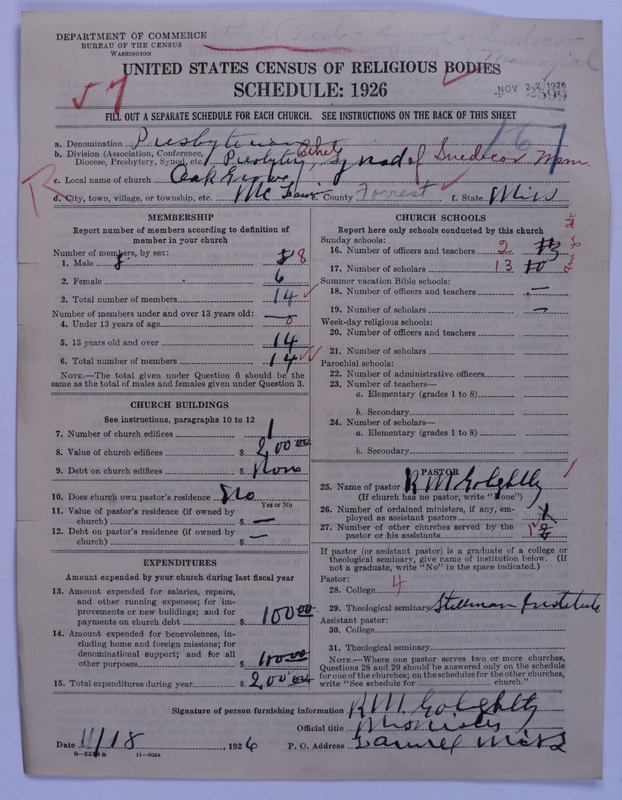 DEPARTMENT OF COMMERCE
BUREAU OF THE CENSUS
WASHINGTON
Ethel Presb - Synod of Snedecor
Memorial
UNITED STATES CENSUS OF RELIGIOUS BODIES
SCHEDULE: 1926
NOV 22 1926
2599
FILL OUT A SEPARATE SCHEDULE FOR EACH CHURCH. SEE INSTRUCTIONS ON THE BACK OF THIS SHEET
167
a. Denomination Presbyterian
b. Division (Association, Conference, Diocese, Presbytery, Synod, etc.) Presbytery, Ethel, Synod of Snedecor Mem.
c. Local name of church Oak Grove
d. City, town, village, or township, etc. McLaurin e. County Forrest f. State Miss
MEMBERSHIP
Report number of members according to definition of
member in your church
Number of members, by sex:
1. Male 8 8
2. Female 6
3. Total number of members 14
Number of members under and over 13 years old:
4. Under 13 years of age — 0
5. 13 years old and over 14
6. Total number of members 14
NOTE.—The total given under Question 6 should be the
same as the total of males and females given under Question 3.
CHURCH BUILDINGS
See instructions, paragraphs 10 to 12
7. Number of church edifices 1
8. Value of church edifices $ 200 00
9. Debt on church edifices $ None
10. Does church own pastor's residence No
Yes or No
11. Value of pastor's residence (if owned by
church) $ —
12. Debt on pastor's residence (if owned by
church) $ —
EXPENDITURES
Amount expended by your church during last fiscal year
13. Amount expended for salaries, repairs,
and other running expenses; for im-
provements or new buildings; and for
payments on church debt $ 100 00
14. Amount expended for benevolences, in-
cluding home and foreign missions; for
denominational support; and for all
other purposes $ 100 00
15. Total expenditures during year $ 200 00
CHURCH SCHOOLS
Report here only schools conducted by this church
Sunday schools:
16. Number of officers and teachers 2
17. Number of scholars 13 10
Summer vacation Bible schools:
18. Number of officers and teachers —
19. Number of scholars —
Week-day religious schools:
20. Number of officers and teachers
21. Number of scholars
Parochial schools:
22. Number of administrative officers
23. Number of teachers—
a. Elementary (grades 1 to 8)
b. Secondary
24. Number of scholars—
a. Elementary (grades 1 to 8)
b. Secondary
PASTOR
25. Name of pastor R M Golightly
(If church has no pastor, write "None")
26. Number of ordained ministers, if any, em-
ployed as assistant pastors
27. Number of other churches served by the
pastor or his assistants
If pastor (or assistant pastor) is a graduate of a college or
theological seminary, give name of institution below. (If
not a graduate, write "No" in the space indicated.)
Pastor:
28. College 4
29. Theological seminary Stillman Institute
Assistant pastor:
30. College
31. Theological seminary
NOTE.—Where one pastor serves two or more churches,
Questions 28 and 29 should be answered only on the schedule
for one of the churches; on the schedules for the other churches,
write "See schedule for church."
Signature of person furnishing information R M Golightly
Official title Minister
Date 11/18, 1926 P. O. Address Laurel Miss
11—9064